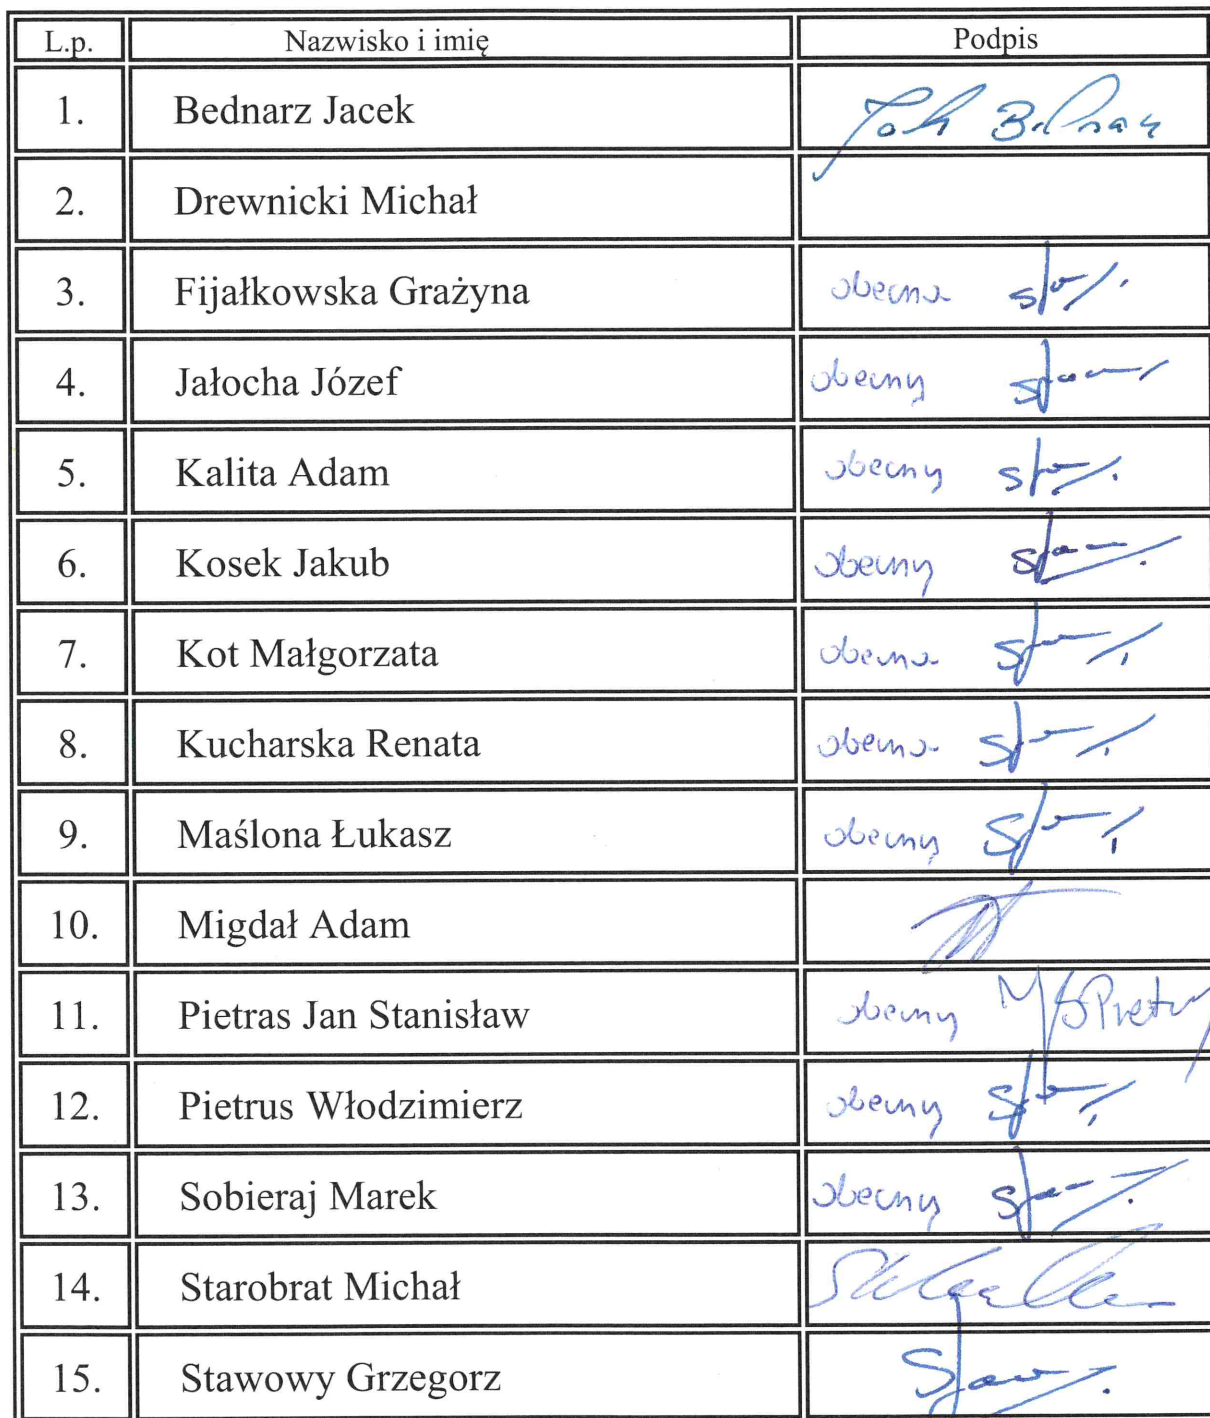 L.p. Nazwisko i imię Podpis
1. Bednarz Jacek
2. Drewnicki Michał
3. Fijałkowska Grażyna obecna
4. Jałocha Józef obecny
5. Kalita Adam obecny
6. Kosek Jakub obecny
7. Kot Małgorzata obecna
8. Kucharska Renata obecna
9. Maślona Łukasz obecny
10. Migdał Adam
11. Pietras Jan Stanisław obecny
12. Pietrus Włodzimierz obecny
13. Sobieraj Marek obecny
14. Starobrat Michał
15. Stawowy Grzegorz